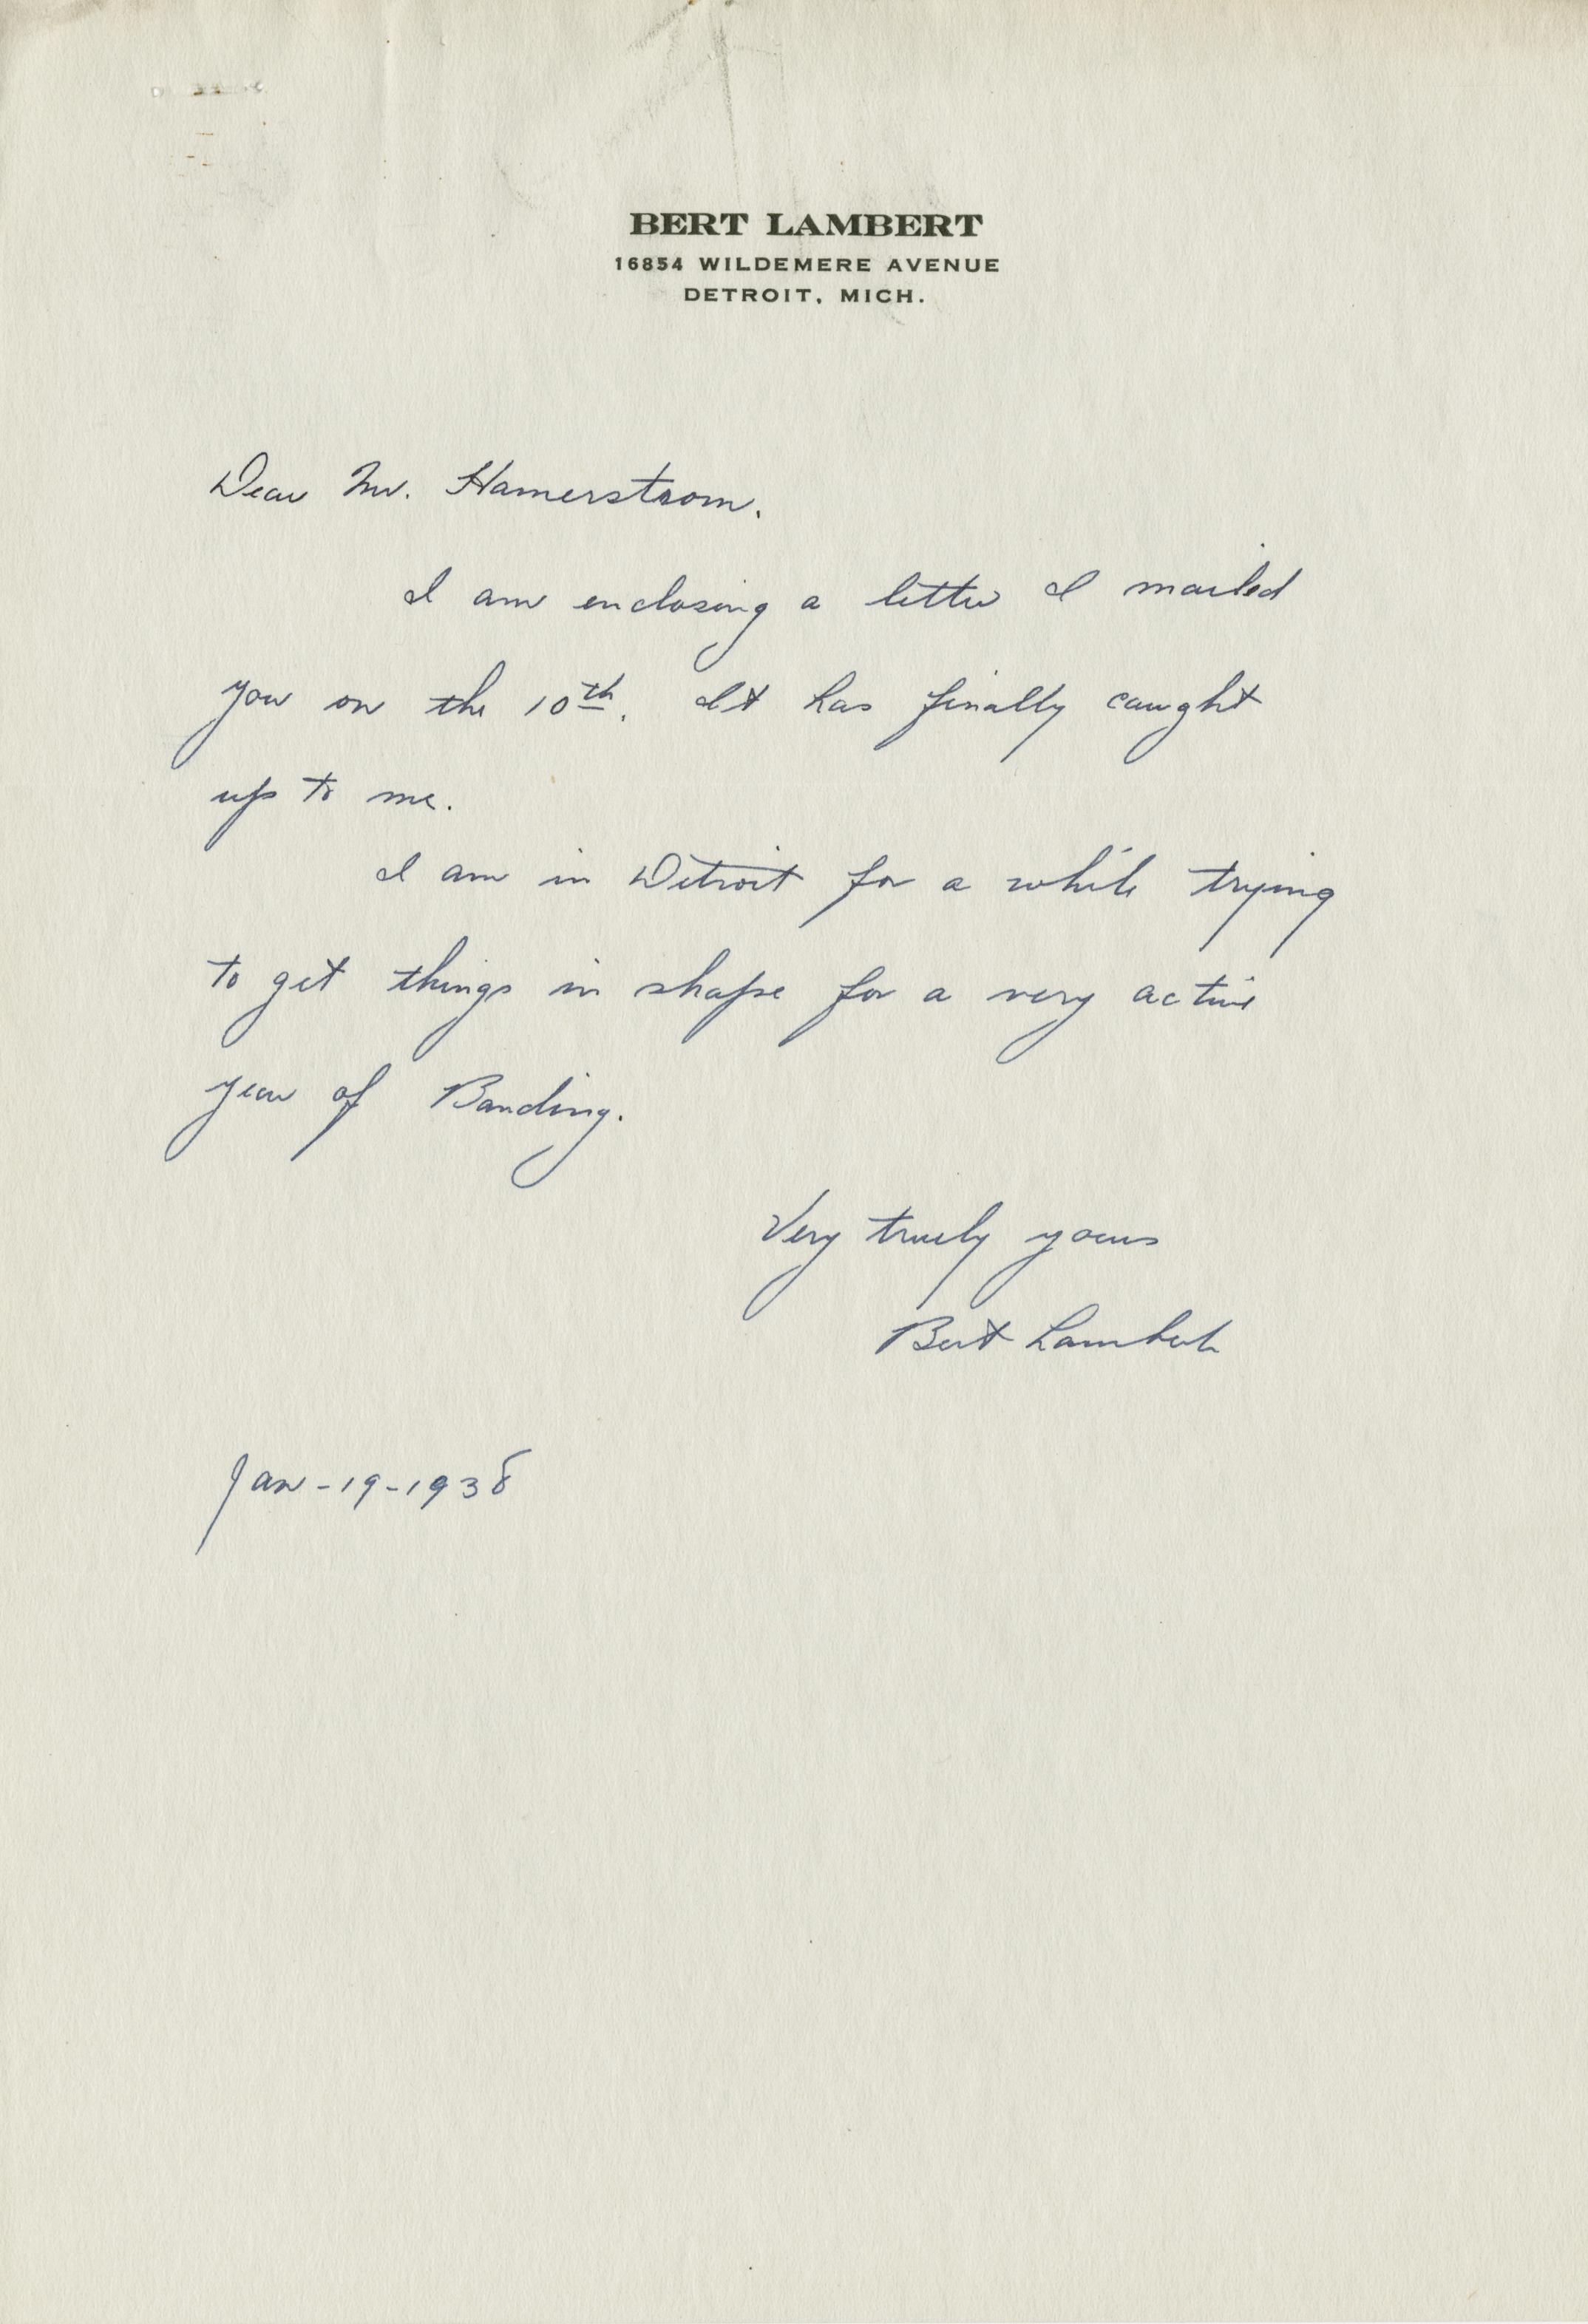 BERT LAMBERT
16854 WILDEMERE AVENUE
DETROIT, MICH.
Dear Mr. Hamerstrom.
I am enclosing a letter I mailed
you on the 10th. It has finally caught
up to me.
I am in Detroit for a while trying
to get things in shape for a very active
year of Banding.
Very truly yours
Bert Lambert
Jan-19-1938